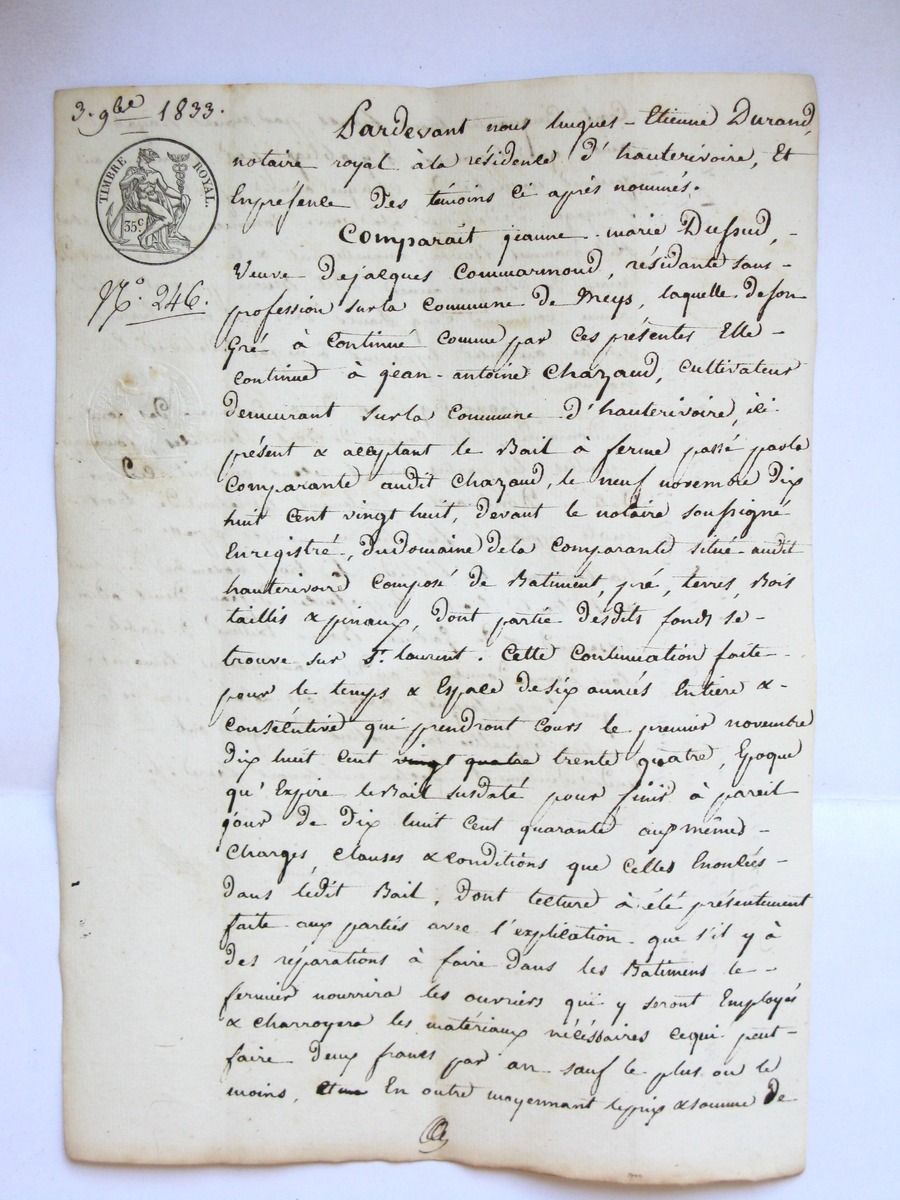 3. 9bre 1833.
TIMBRE ROYAL.
35c
No. 246.
Pardevant nous hugues - Etienne Durand,
notaire royal à la résidence d'hauterivoire, Et
Enprésence des témoins Ci après nommés.
Comparait jeanne - marie Dussud, -
Veuve dejacques Commarmond, résidante sans -
profession sur la Commune de Meys, laquelle deson
Gré à Continué Comme par Ces présentes Elle -
Continue à jean - antoine Chazaud, Cultivateur
demeurant sur la Commune d'hauterivoire, ici
présent & acceptant le Bail à ferme passé parla
Comparante audit Chazaud, le neuf novembre Dix
huit Cent vingt huit, devant le notaire soussigné
Enregistré, Dudomaine Dela Comparante situé audit
hauterivoire Composé de Batiment, pré, terres, Bois
taillis & pinaux, dont partie desdits fonds se -
trouve sur St. laurent. Cette Continuation faite -
pour le temps & Espace desix années Entière & -
Consécutive qui prendront Cours le premier novembre
Dix huit Cent vingt quatre trente quatre, Epoque
qu'Expire leBail susdaté pour finir à pareil
jour de Dix huit Cent quarante aux mêmes -
Charges, Clauses & Conditions que Celles Enoncées -
dans ledit Bail, Dont lecture à été présentement
faite aux parties avec l'explication que s'il y à
des réparations à faire dans les Batimens le -
fermier nourrira les ouvriers qui y seront Employés
& charroyera les matériaux nécéssaires cequi peut -
faire deux francs par an sauf le plus ou le
moins, En outre moyennant leprix & somme de